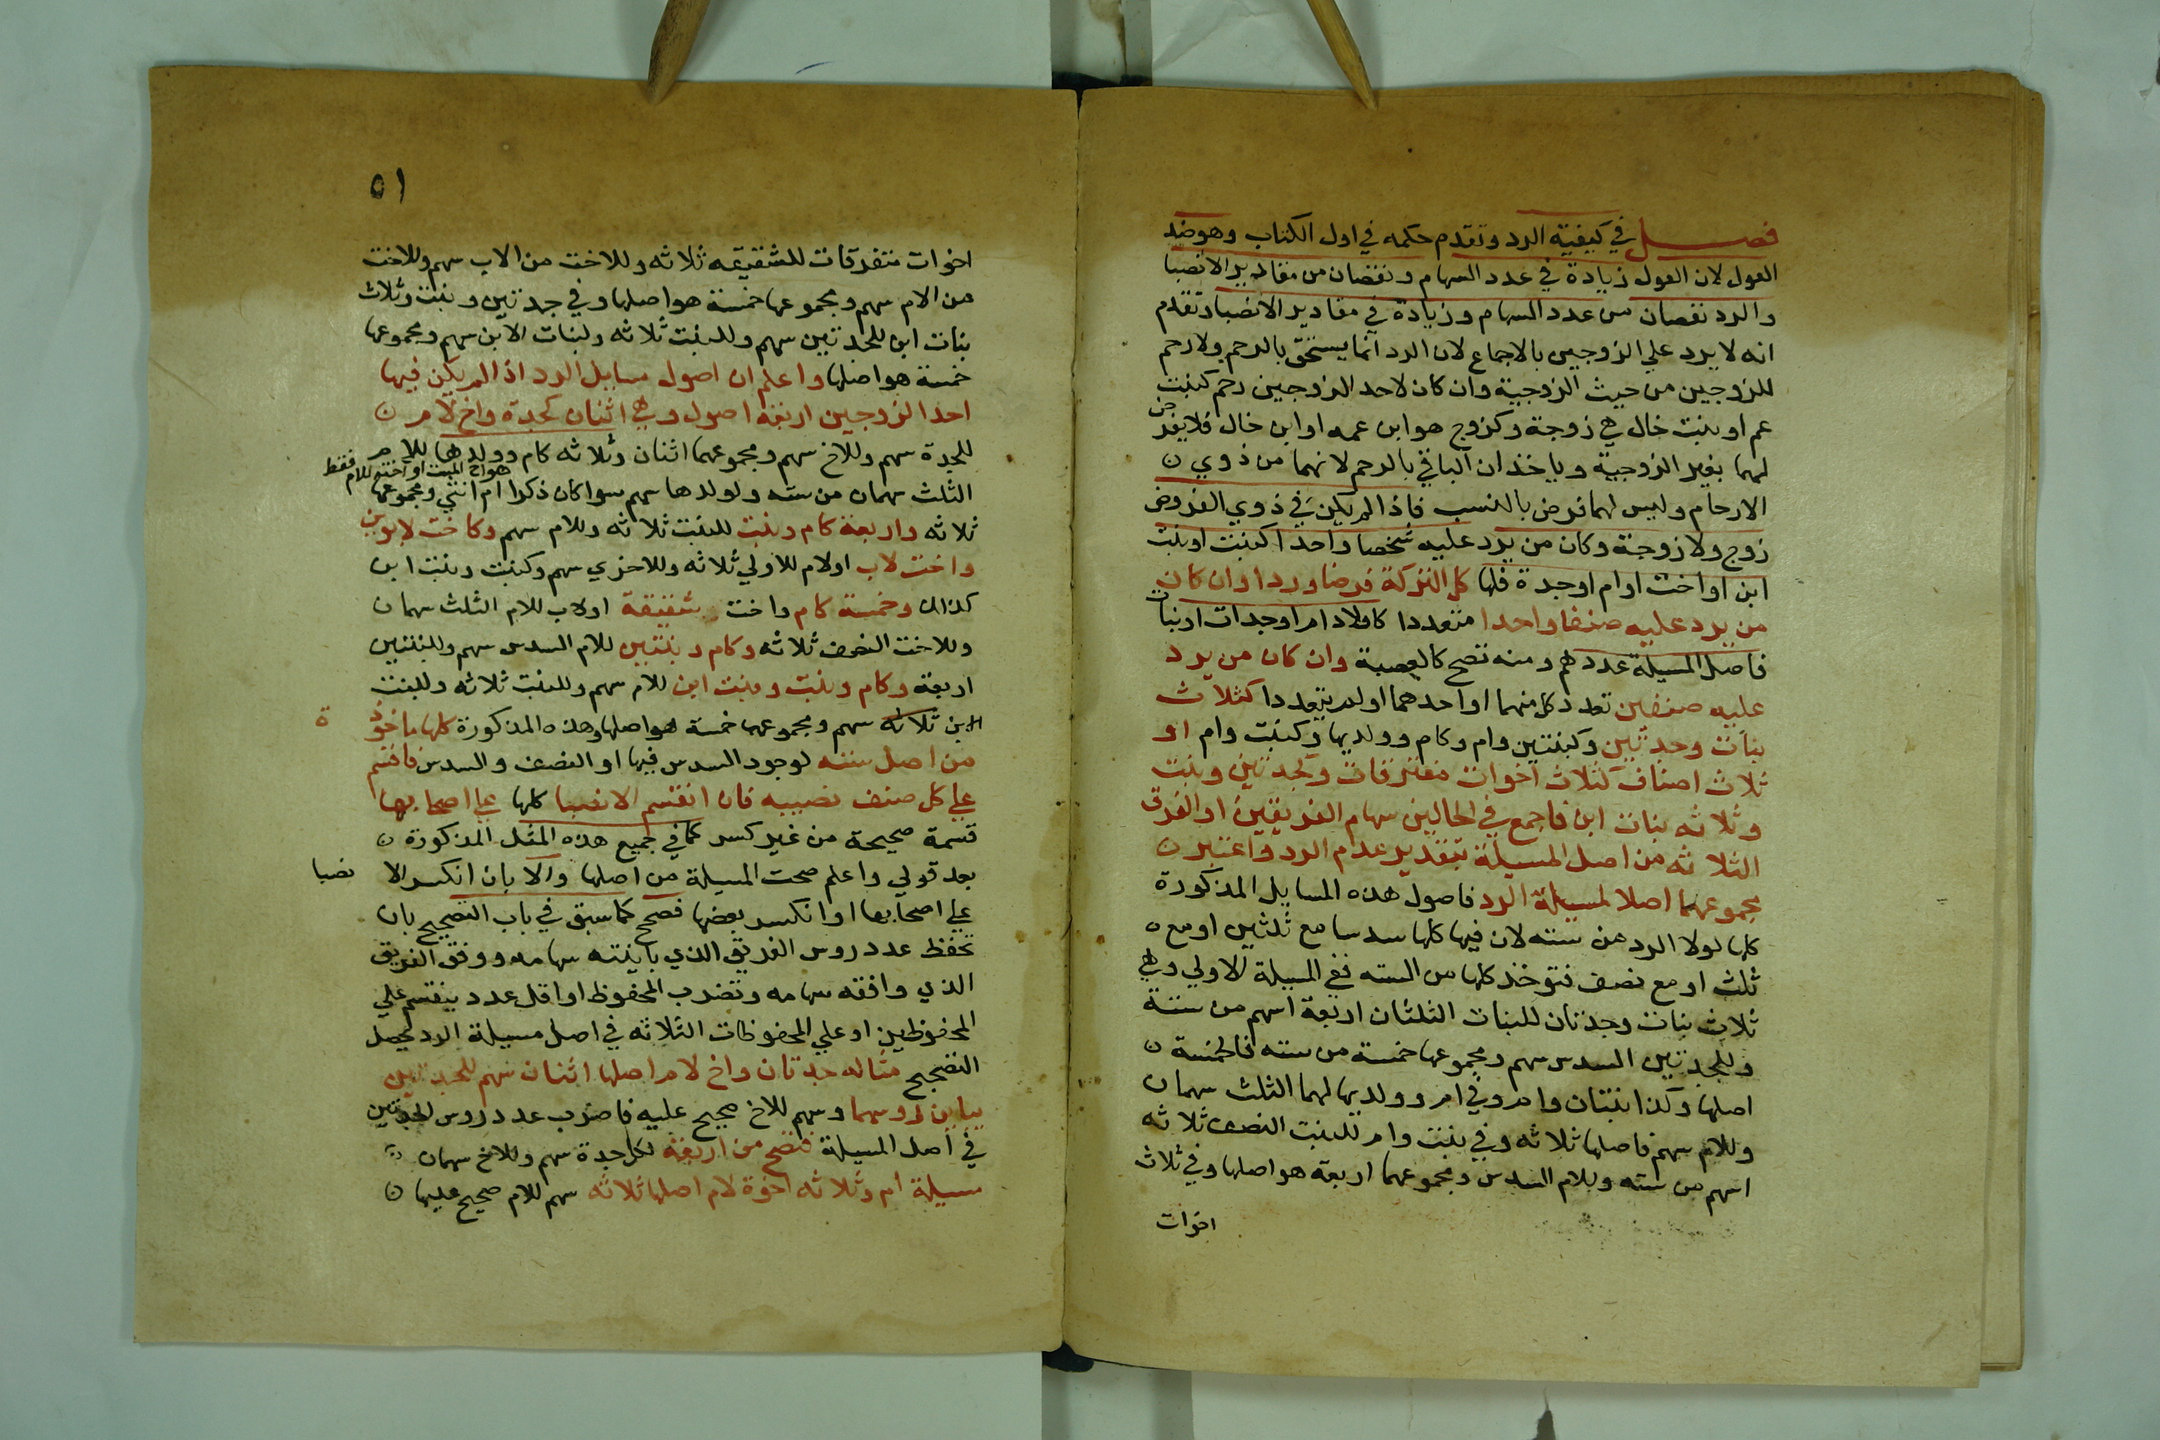 فصل في كيفية الرد وتقدم حكمه في اول الكتاب وهو ضد
العول لان العول زيادة في عدد السهام ونقصان من مقادير الانصبا
والرد نقصان من عدد السهام وزيادة في مقادير الانصبا وتقدم
انه لا يرد علي الزوجين بالاجماع لان الرد انما يستحق بالرحم ولا رحم
للزوجين من حيث الزوجية وان كان لاحد الزوجين رحم كبنت
عم او بنت خال هي زوجة وكزوج هو ابن عمه او ابن خال فلا يفرض
لهما بغير الزوجية وياخذان الباقي بالرحم لانهما من ذوي
الارحام وليس لهما فرض بالنسب فاذا لم يكن في ذوي الفروض
زوج ولا زوجة وكان من يرد عليه شخصا واحدا كبنت او بنت
ابن او اخت او ام او جدة فلها كل التركة فرضا وردا وان كان
من يرد عليه صنفا واحدا متعددا كاولاد ام او جدات او بنات
فاصل المسيلة عددهم ومنه تصح كالعصبة وان كان من يرد
عليه صنفين تعدد كل منهما او احدهما او لم يتعددا كثلاث
بنات وجدتين وكبنتين وام وكام وولديها وكبنت وام او
ثلاث اصناف كثلاث اخوات مفترقات وكجدتين وبنت
وثلاثه بنات ابن فاجمع في الحالين سهام الفريقين او الفرق
الثلاثه من اصل المسيلة بتقدير عدم الرد واعتبر
مجموعهما اصلا لمسيلة الرد فاصول هذه المسايل المذكورة
كلها لولا الرد من سته لان فيها كلها سدسا مع ثلثين او مع
ثلث او مع نصف فتوخذ كلها من السته ففي المسيلة الاولي وهي
ثلاث بنات وجدتان للبنات الثلثان اربعة اسهم من ستة
وللجدتين السدس سهم ومجموعها خمسة من سته فالخمسة
اصلها وكذا بنتان وام وفي ام وولديها لهما الثلث سهمان
وللام سهم فاصلها ثلاثه وفي بنت وام للبنت النصف ثلاثه
اسهم من سته وللام السدس ومجموعهما اربعة هو اصلها وفي ثلاث
اخوات
٥١
اخوات متفرقات للشقيقه ثلاثه وللاخت من الاب سهم وللاخت
من الام سهم ومجموعها خمسة هو اصلها وفي جدتين وبنت وثلاث
بنات ابن للجدتين سهم وللبنت ثلاثه ولبنات الابن سهم ومجموعها
خمسة هو اصلها واعلم ان اصول مسايل الرد اذا لم يكن فيها
احد الزوجين اربعة اصول وهي اثنان كجدة واخ لام
للجدة سهم وللاخ سهم ومجموعهما اثنان وثلاثه كام وولدها للام
هو اخ الميت او اخته للام فقط
الثلث سهمان من سته ولولدها سهم سوا كان ذكرا ام انثي ومجموعها
ثلاثه واربعة كام وبنت للبنت ثلاثه وللام سهم وكاخت لابوين
واخت لاب او لام للاولي ثلاثه وللاخري سهم وكبنت وبنت ابن
كذلك وخمسة كام واخت شقيقة او لاب للام الثلث سهمان
وللاخت النصف ثلاثه وكام وبنتين للام السدس سهم وللبنتين
اربعة وكام وبنت وبنت ابن للام سهم وللبنت ثلاثه وللبنت
الابن ثلاثه سهم ومجموعها خمسة هو اصلها وهذه المذكورة كلها ماخوذ ة
من اصل سته لوجود السدس فيها او النصف والسدس فاقسم
علي كل صنف نصيبه فان انقسم الانصبا كلها علي اصحابها
قسمة صحيحة من غير كسر كما في جميع هذه المثل المذكورة
بعد قولي واعلم صحت المسيلة من اصلها والا بان انكسر الا نصبا
علي اصحابها او انكسر بعضها فصح كما سبق في باب التصحيح بان
تحفظ عدد روس الفريق الذي باينته سهامه ووفق الفريق
الذي وافقه سهامه وتضرب المحفوظ او اقل عدد ينقسم علي
المحفوظين او علي المحفوظات الثلاثه في اصل مسيلة الرد ليحصل
التصحيح مثاله جدتان واخ لام اصلها اثنان سهم للجدتين
يباين روسهما وسهم للاخ صحيح عليه فاضرب عدد روس الجدتين
في اصل المسيلة فتصح من اربعة لكل جدة سهم وللاخ سهمان
مسيلة ام وثلاثه اخوة لام اصلها ثلاثه سهم للام صحيح عليها